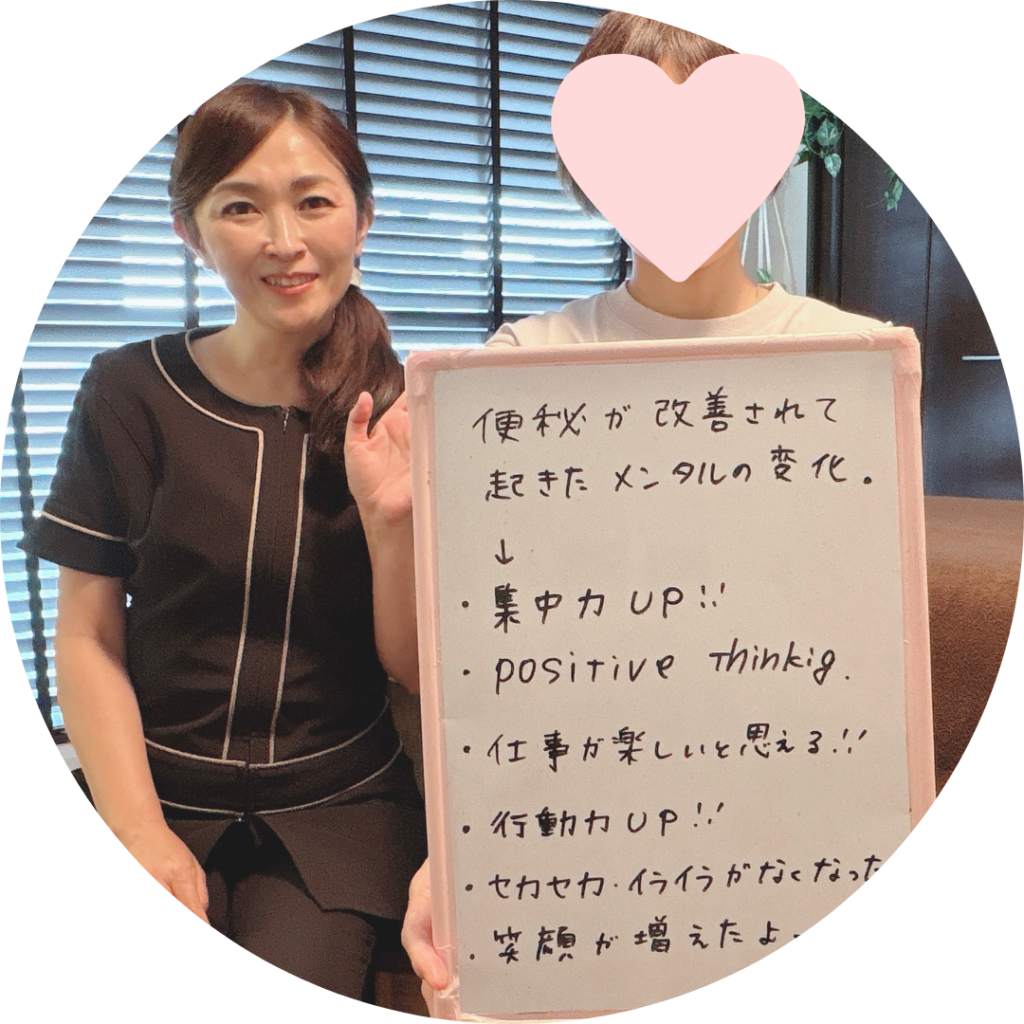 便秘が改善されて
起きたメンタルの変化。
↓
・集中力UP!!
・positive Thinkig.
・仕事が楽しいと思える!!
・行動力UP!!
・セカセカ・イライラがなくなった
・笑顔が増えたよ